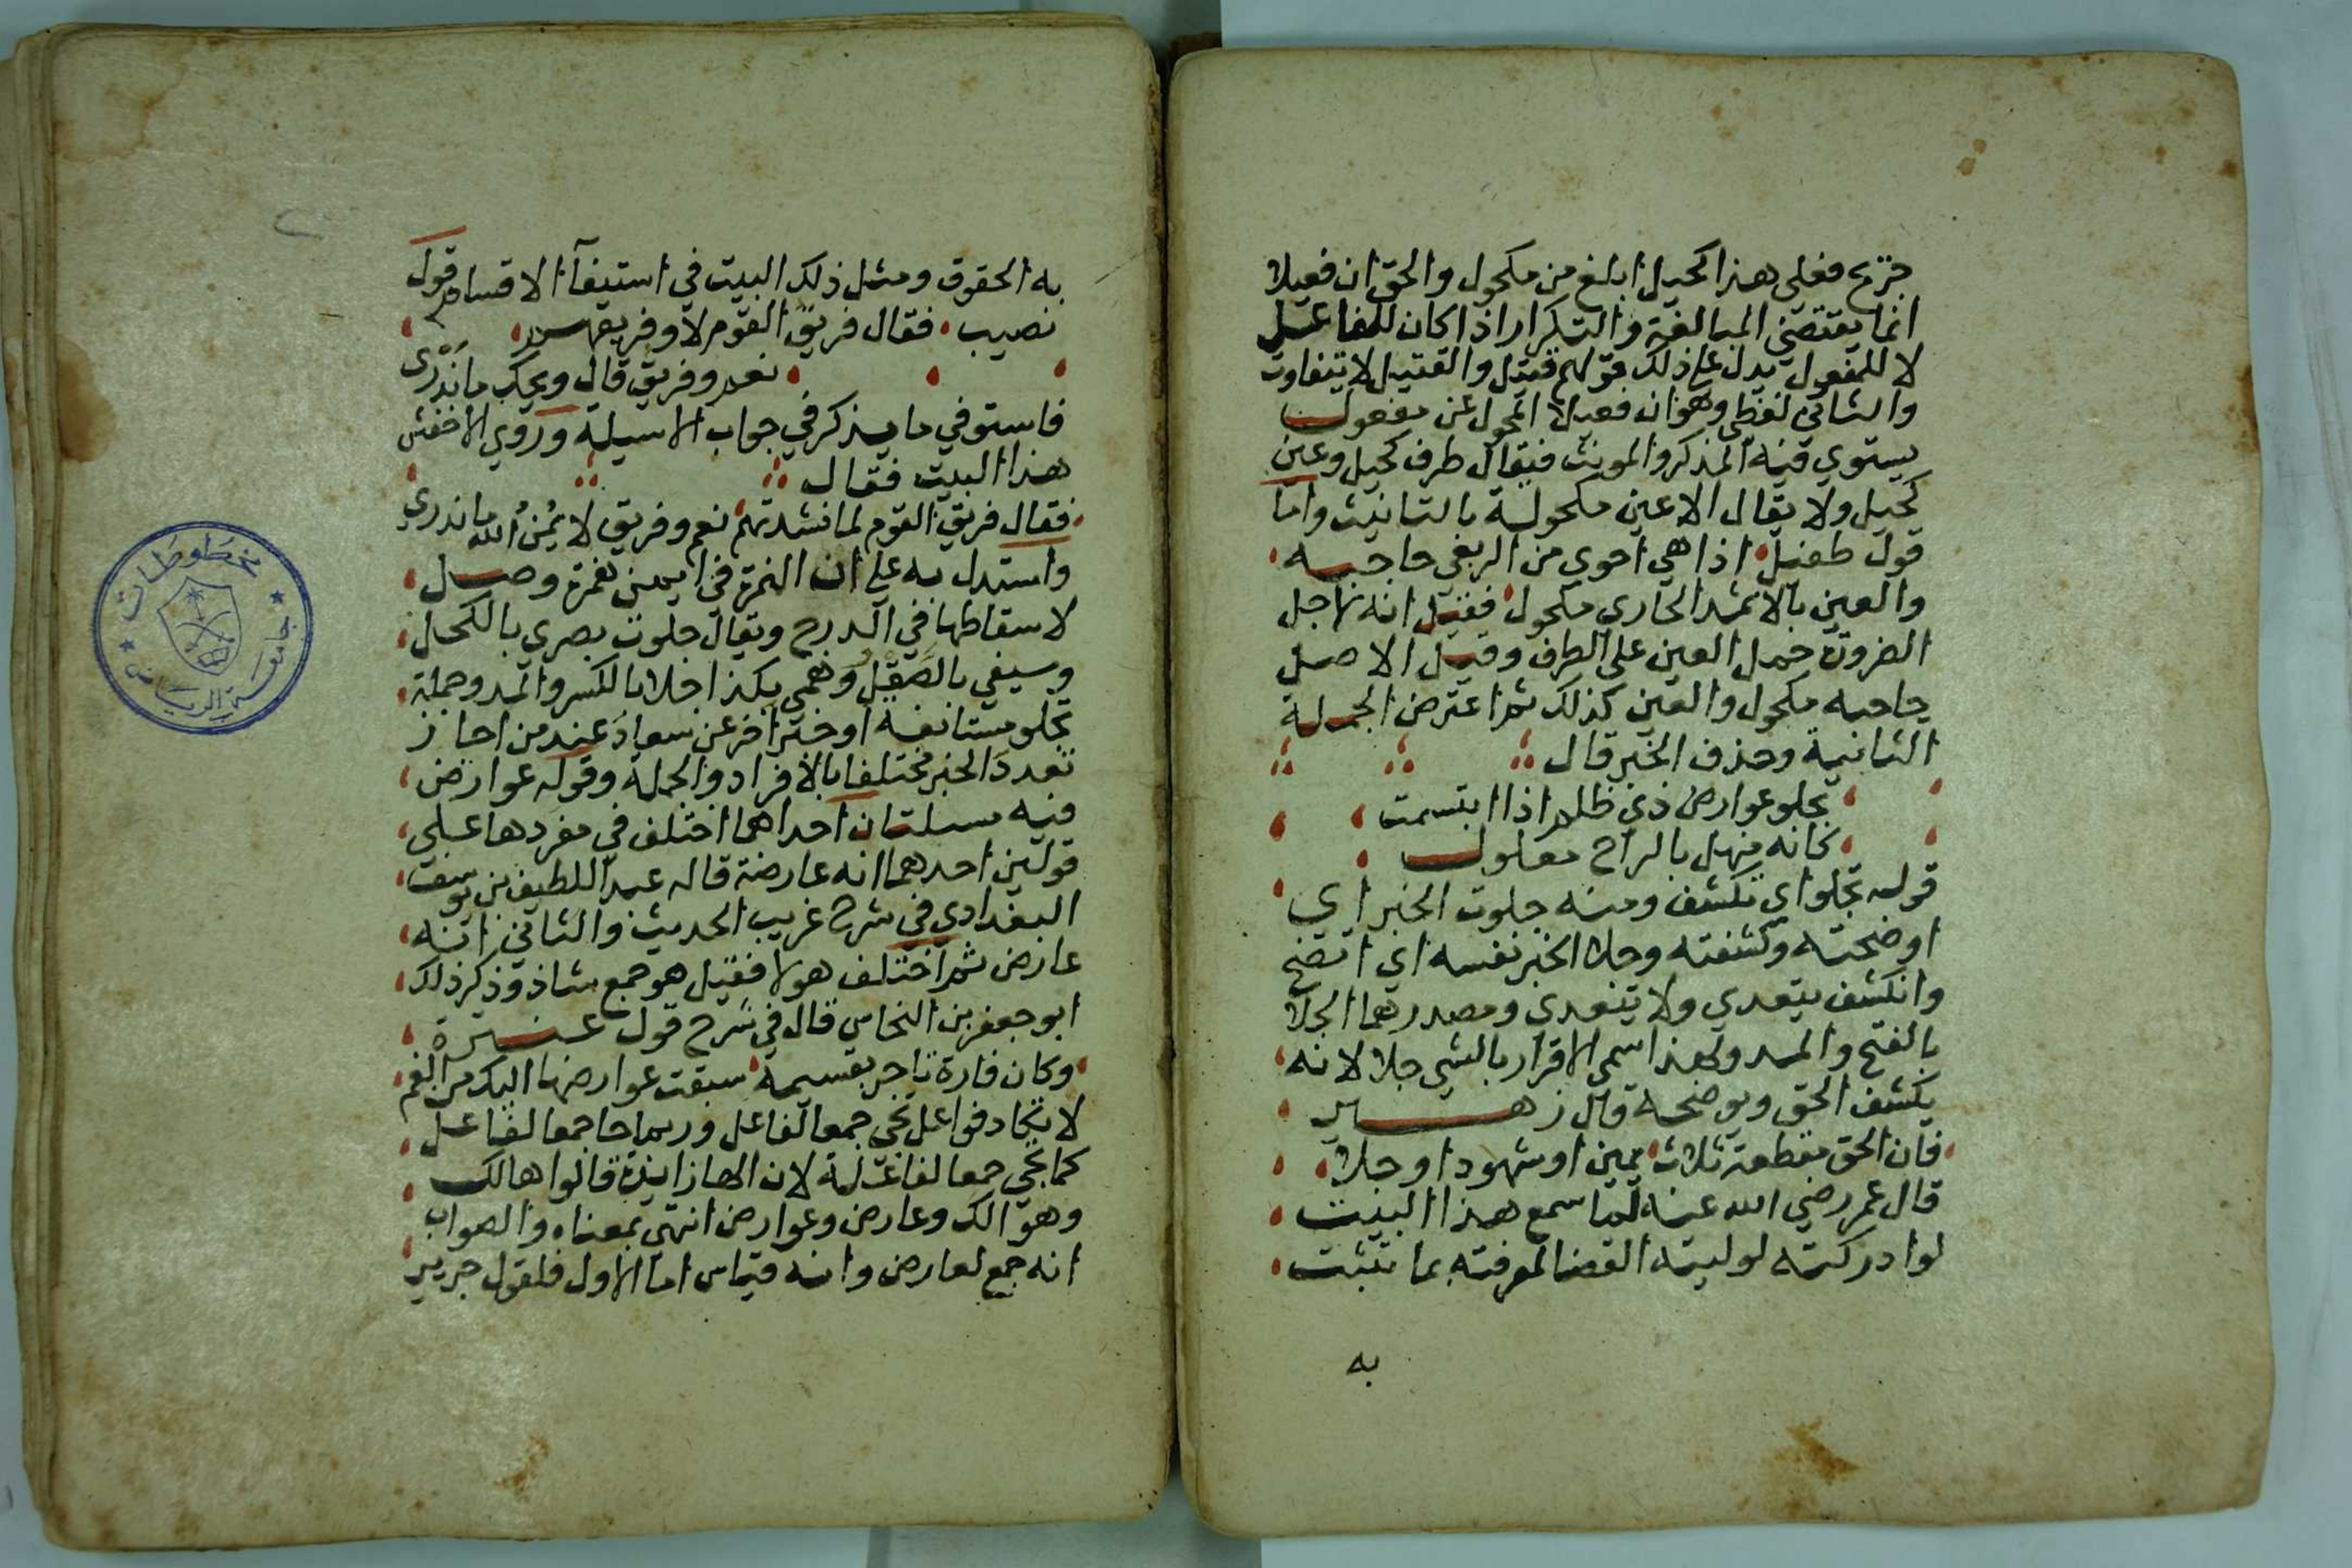 جريح فعلى هذا كحيل ابلغ من مكحول والحق ان فعيلا
انما يقتضي المبالغة والتكرار اذا كان للفاعل
لا للمفعول يدل على ذلك قولهم قتيل والقتيل لا يتفاوت
والثاني لفظي وهو ان فعيلا المحول عن مفعول
يستوي فيه المذكر والمونث فيقال طرف كحيل وعين
كحيل ولا يقال الا عين مكحولة بالتانيث واما
قول طفيل اذا هي احوي من الربعي حاجبه
والعين بالاثمد الحاري مكحول فقيل انه لاجل
الضرورة حمل العين على الطرف وقيل الاصل
حاجبه مكحول والعين كذلك ثم اعترض الجملة
الثانية وحذف الخبر قال
تجلو عوارض ذي ظلم اذا ابتسمت
كانه منهل بالراح معلول
قوله تجلو اي تكشف ومنه جلوت الخبر اي
اوضحته وكشفته وجلا الخبر نفسه اي اتضح
وانكشف يتعدي ولا يتعدي ومصدرهما الجلا
بالفتح والمد ولهذا سمي الاقرار بالشي جلا لانه
يكشف الحق ويوضحه قال زهير
فان الحق مقطعه ثلاث يمين او شهود او جلا
قال عمر رضي الله عنه لما سمع هذا البيت
لو ادركته لوليته القضا لمعرفته بما تثبت
به
به الحقوق ومثل ذلك البيت في استيفآ الاقسام قول
نصيب فقال فريق القوم لا وفريقهم
نعم وفريق قال ويحك ما ندرى
فاستوفي ما يذكر في جواب الاسيلة وروي الاخفش
هذا البيت فقال
فقال فريق القوم لما نشدتهم نعم وفريق لا يمن الله ما ندري
واستدل به على ان الهمزة في ايمن همزة وصل
لاسقاطها في الدرج ويقال جلوت بصري بالكحل
وسيفي بالصقل وهمي بكذا جلا بالكسر والمد وجملة
تجلو مستانفة او خبر اخر عن سعاد عند من اجاز
تعدد الخبر مختلفا بالافراد والجملة وقوله عوارض
فيه مسئلتان احداهما اختلف في مفردها على
قولين احدهما انه عارضة قاله عبد اللطيف بن يوسف
البغدادي في شرح غريب الحديث والثاني انه
عارض ثم اختلف هولا فقيل هو جمع شاذ وذكر ذلك
ابو جعفر بن النحاس قال في شرح قول عنترة
وكان فارة تاجر بقسيمة سبقت عوارضها اليك من الفم
لا يكاد فواعل تجي جمعا لفاعل وربما جا جمعا لفاعل
كما تجي جمعا لفاعلة لان الها زايدة قالوا هالك
وهوالك وعارض وعوارض انتهى بمعناه والصواب
انه جمع لعارض وانه قياس اما الاول فلقول جرير
مخطوطات
جامعة الرياض